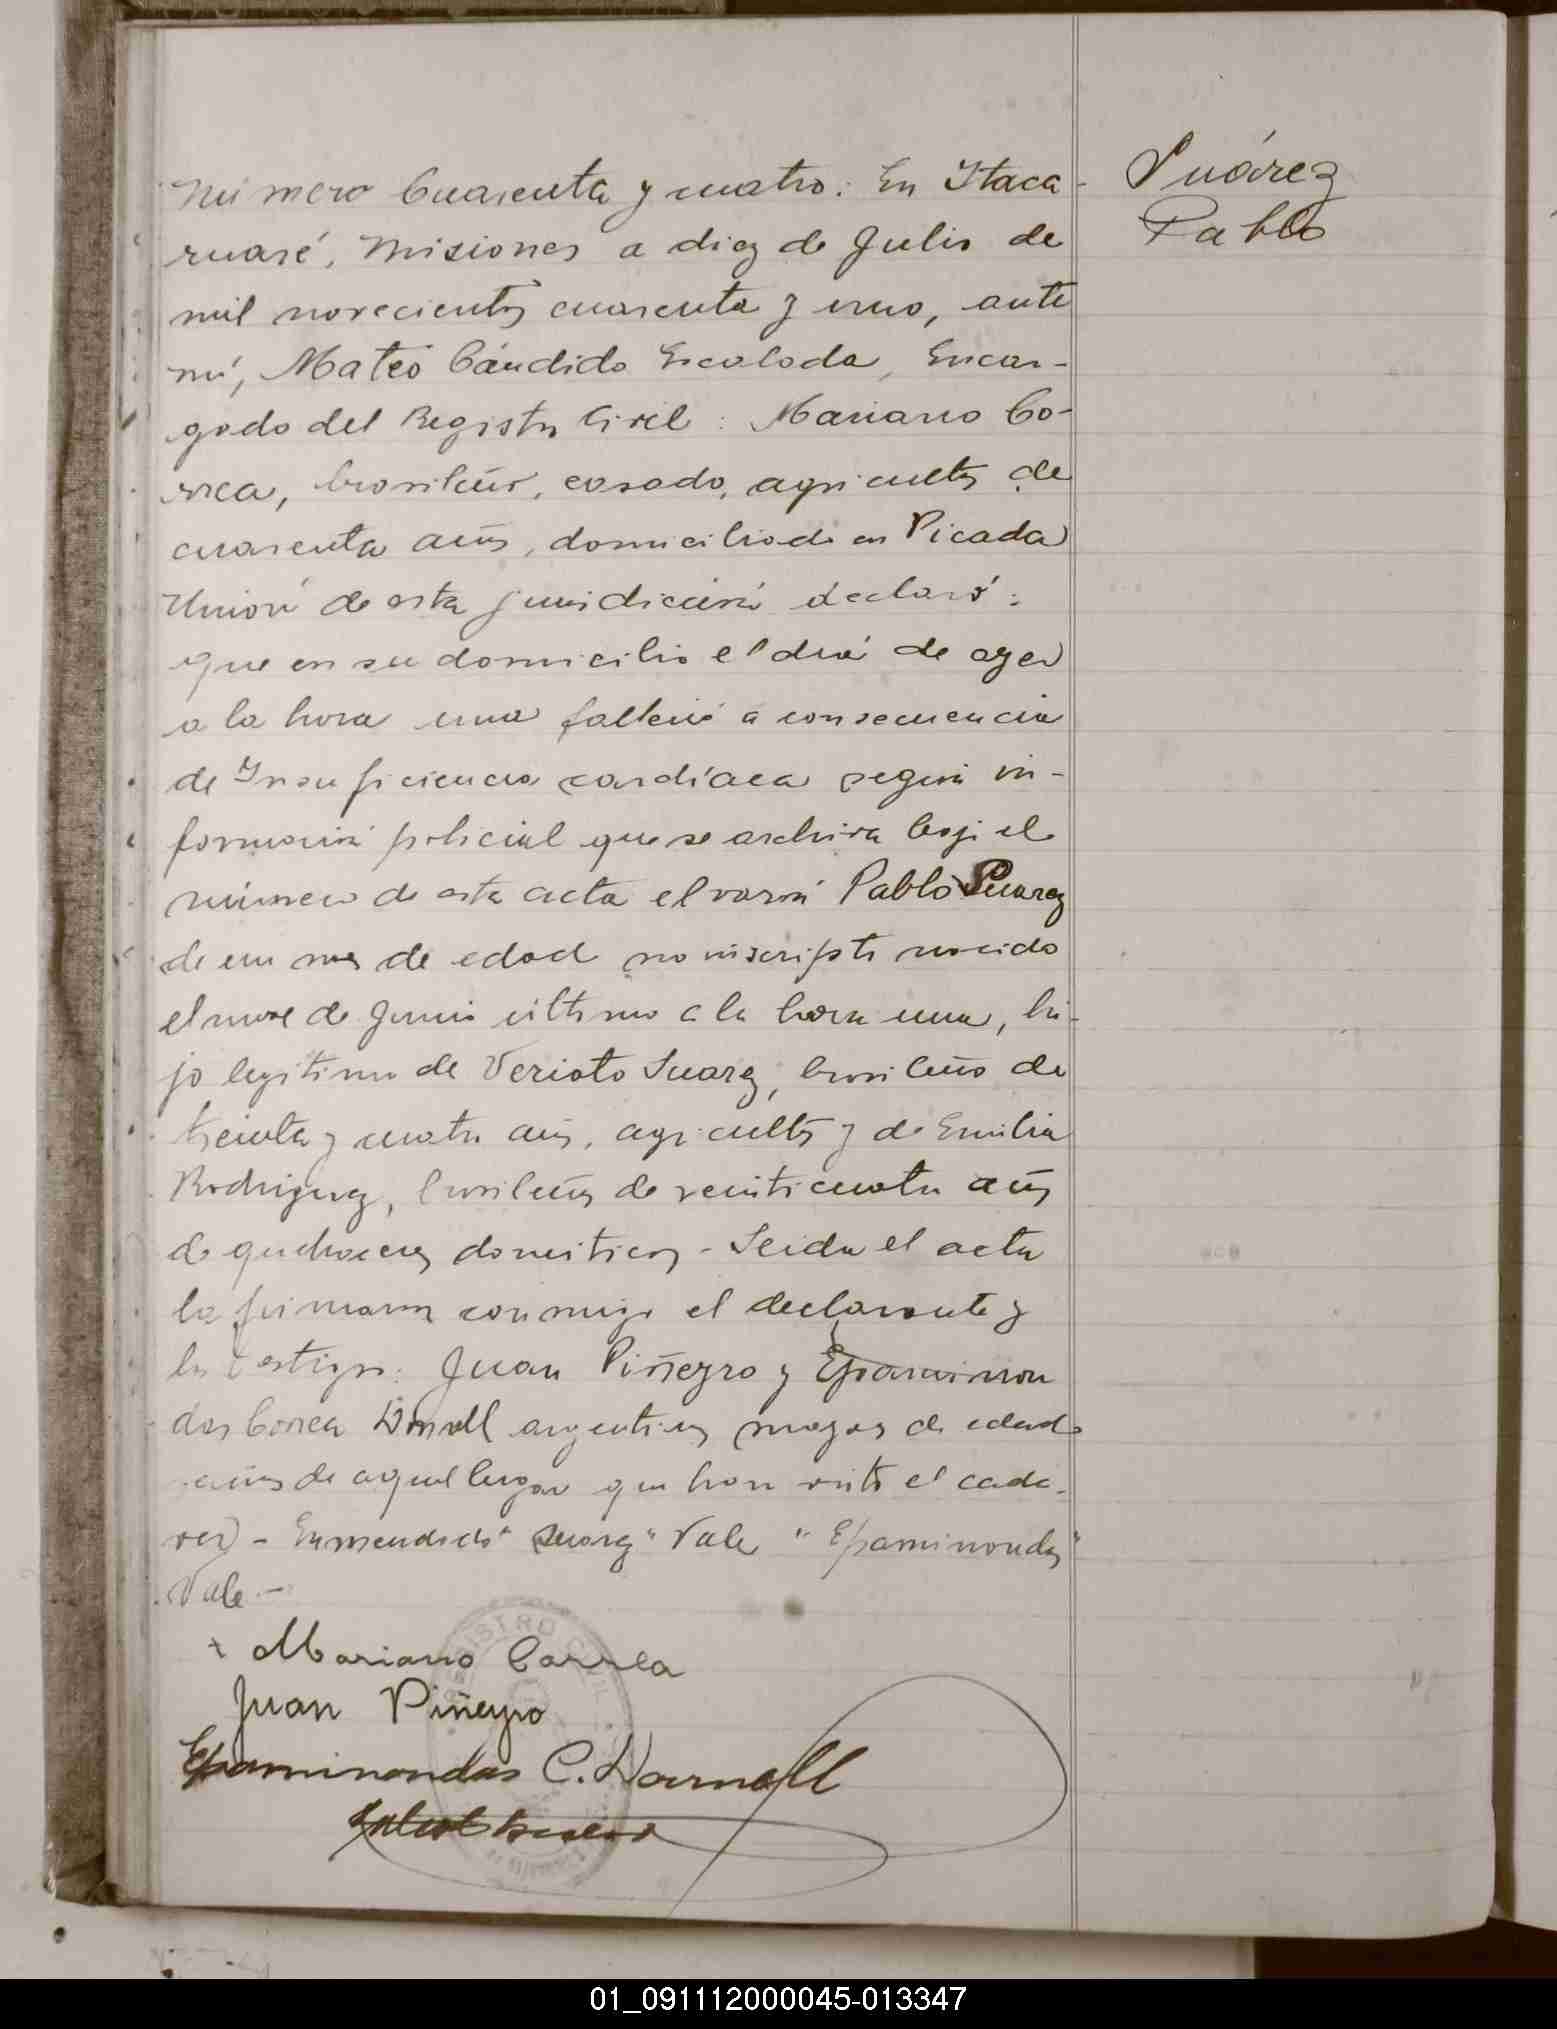 Suárez
Pablo
Número Cuarenta y cuatro: En Itaca-
ruaré, Misiones a diez de Julio de
mil novecientos cuarenta y uno, ante
mí, Mateo Cándido Escalada, Encar-
gado del Registro Civil: Mariano Co-
rrea, brasileño, casado, agricultor de
cuarenta años, domiciliado en Picada
Unión de esta jurisdicción declaró:
que en su domicilio el día de ayer
a la hora una falleció a consecuencia
de Insuficiencia cardíaca según in-
formación policial que se archiva bajo el
número de esta acta el varón Pablo Suarez
de un mes de edad no inscripto nacido
el nueve de Junio último a la hora una, hi-
jo legítimo de Veriato Suarez, brasileño de
treinta y cuatro años, agricultor y de Emilia
Rodriguez, brasileña de veinticuatro años
de quehaceres domésticos - Leída el acta
la firmaron conmigo el declarante y
los testigos: Juan Piñeyro y Epaminon
das Correa Darnall argentinos mayores de edad
de aquel lugar que han visto el cadá-
ver - Enmendido "Suarez" Vale "Epaminondas"
Vale -
Mariano Correa
Juan Piñeyro
Epaminondas C. Darnall
REGISTRO CIVIL
01_091112000045-013347